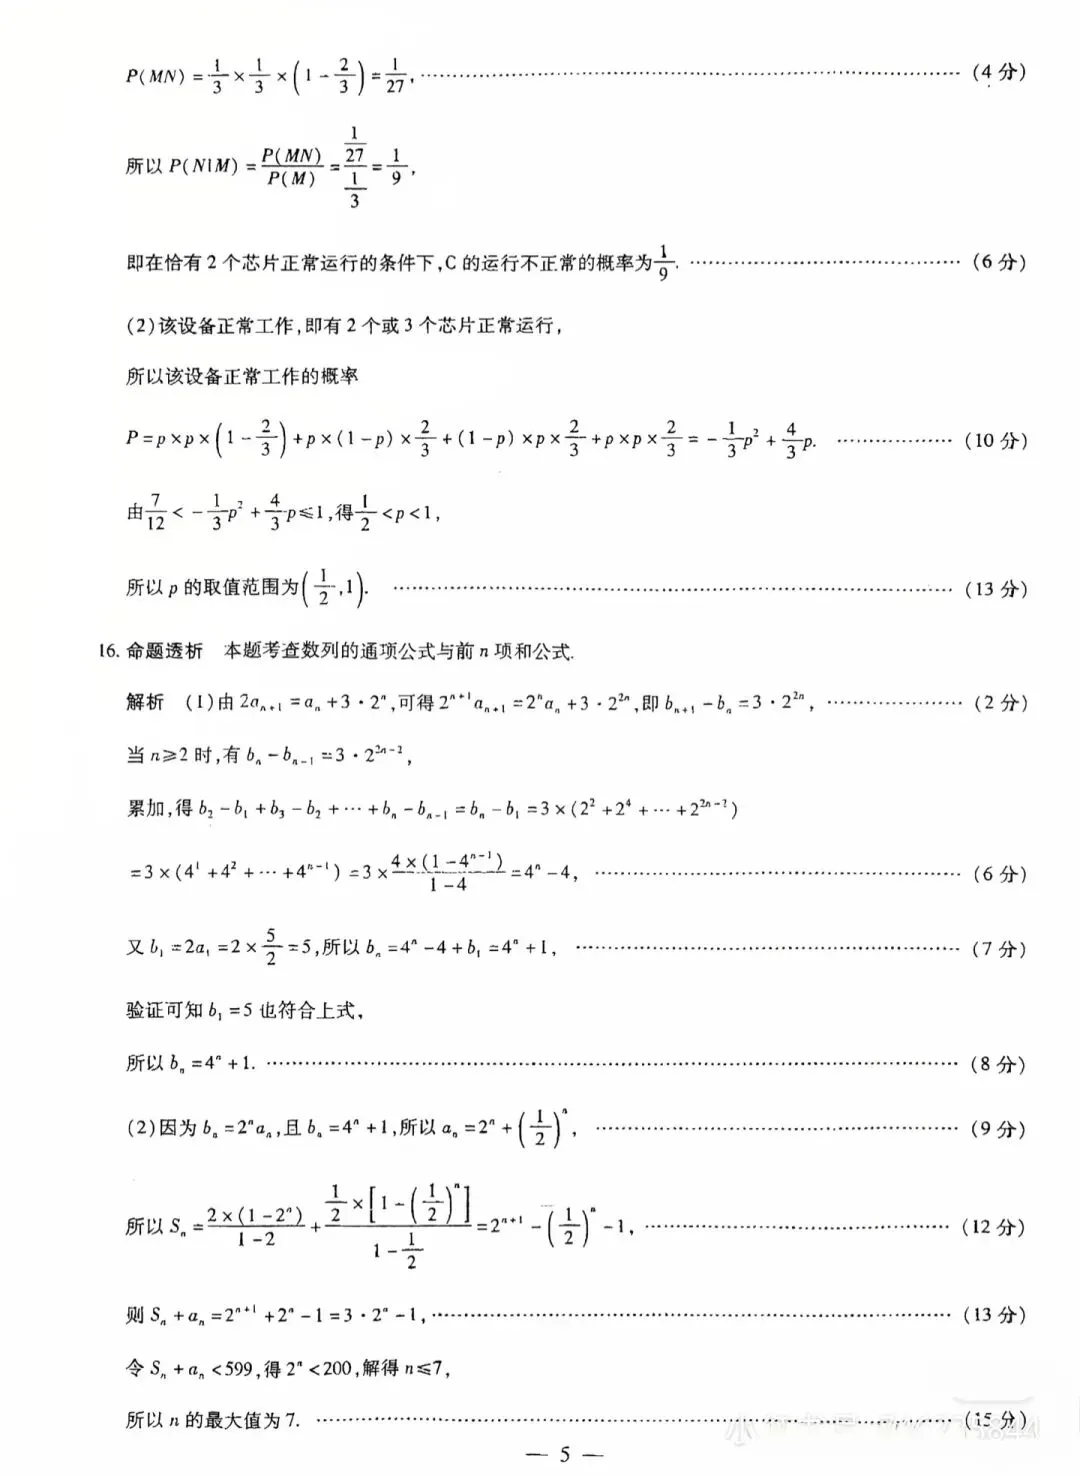 P(MN)=1/3×1/3×(1-2/3)=1/27,……(4分)
所以 P(N|M)=P(MN)/P(M)=(1/27)/(1/3)=1/9,
即在恰有2个芯片正常运行的条件下,C的运行不正常的概率为1/9.……(6分)
(2)该设备正常工作,即有2个或3个芯片正常运行,
所以该设备正常工作的概率
P=p×p×(1-2/3)+p×(1-p)×2/3+(1-p)×p×2/3+p×p×2/3=-1/3p²+4/3p.……(10分)
由7/12<-1/3p²+4/3p≤1,得1/2<p<1,
所以p的取值范围为(1/2,1).……(13分)
16. 命题透析 本题考查数列的通项公式与前n项和公式.
解析 (1)由2aₙ₊₁=aₙ+3·2ⁿ,可得2ⁿ⁺¹aₙ₊₁=2ⁿaₙ+3·2²ⁿ,即bₙ₊₁-bₙ=3·2²ⁿ,……(2分)
当n≥2时,有bₙ-bₙ₋₁=3·2²ⁿ⁻²,
累加,得b₂-b₁+b₃-b₂+⋯+bₙ-bₙ₋₁=bₙ-b₁=3×(2²+2⁴+⋯+2²ⁿ⁻²)
=3×(4¹+4²+⋯+4ⁿ⁻¹)=3×4×(1-4ⁿ⁻¹)/(1-4)=4ⁿ-4,……(6分)
又b₁=2a₁=2×5/2=5,所以bₙ=4ⁿ-4+b₁=4ⁿ+1,……(7分)
验证可知b₁=5也符合上式,
所以bₙ=4ⁿ+1.……(8分)
(2)因为bₙ=2ⁿaₙ,且bₙ=4ⁿ+1,所以aₙ=2ⁿ+(1/2)ⁿ,……(9分)
所以Sₙ=2×(1-2ⁿ)/(1-2)+1/2×[1-(1/2)ⁿ]/(1-1/2)=2ⁿ⁺¹-(1/2)ⁿ-1,……(12分)
则Sₙ+aₙ=2ⁿ⁺¹+2ⁿ-1=3·2ⁿ-1,……(13分)
令Sₙ+aₙ<599,得2ⁿ<200,解得n≤7,
所以n的最大值为7.……(15分)
— 5 —